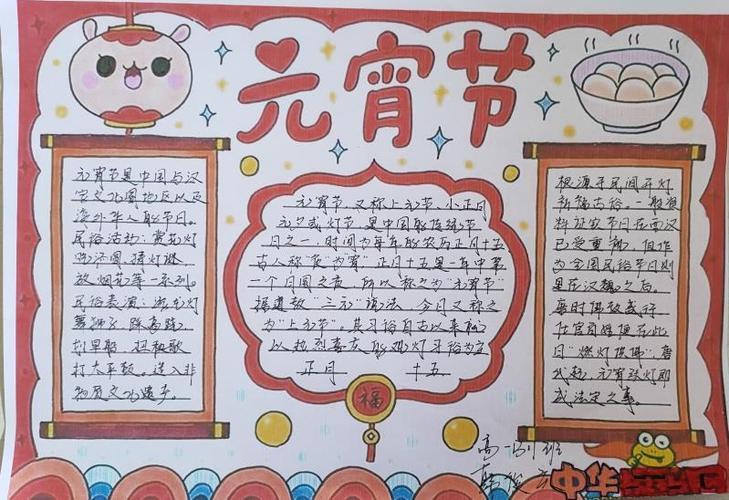 元宵节
元宵节是中国与汉
字文化圈地区以及
海外华人的节日。
民俗活动：赏花灯
吃汤圆 猜灯谜
放烟花等一系列。
民俗表演：游龙灯
舞狮子 踩高跷，
划旱船 扭秧歌
打太平鼓。选入非
物质文化遗产。
元宵节，又称上元节，小正月
元夕或灯节 是中国的传统节
日之一，时间为每年的农历正月十五
古人称"夜"为"宵" 正月十五是一年中第
一个月圆之夜，所以称之为"元宵节"
据道教"三元"说法，今月又称之
为"上元节"。其习俗自古以来就
以热烈喜庆的观灯习俗为主
正月 十五
根源于民间开灯
祈福古俗，一般资
料证实节日在西汉
已受重视，但作
为全国民俗节日则
是在汉魏之后。
每时佛教盛行
仕官百姓便在此
日"燃灯供佛"。唐
代起，元宵张灯即
成法定之事。
福
高一 班
中华